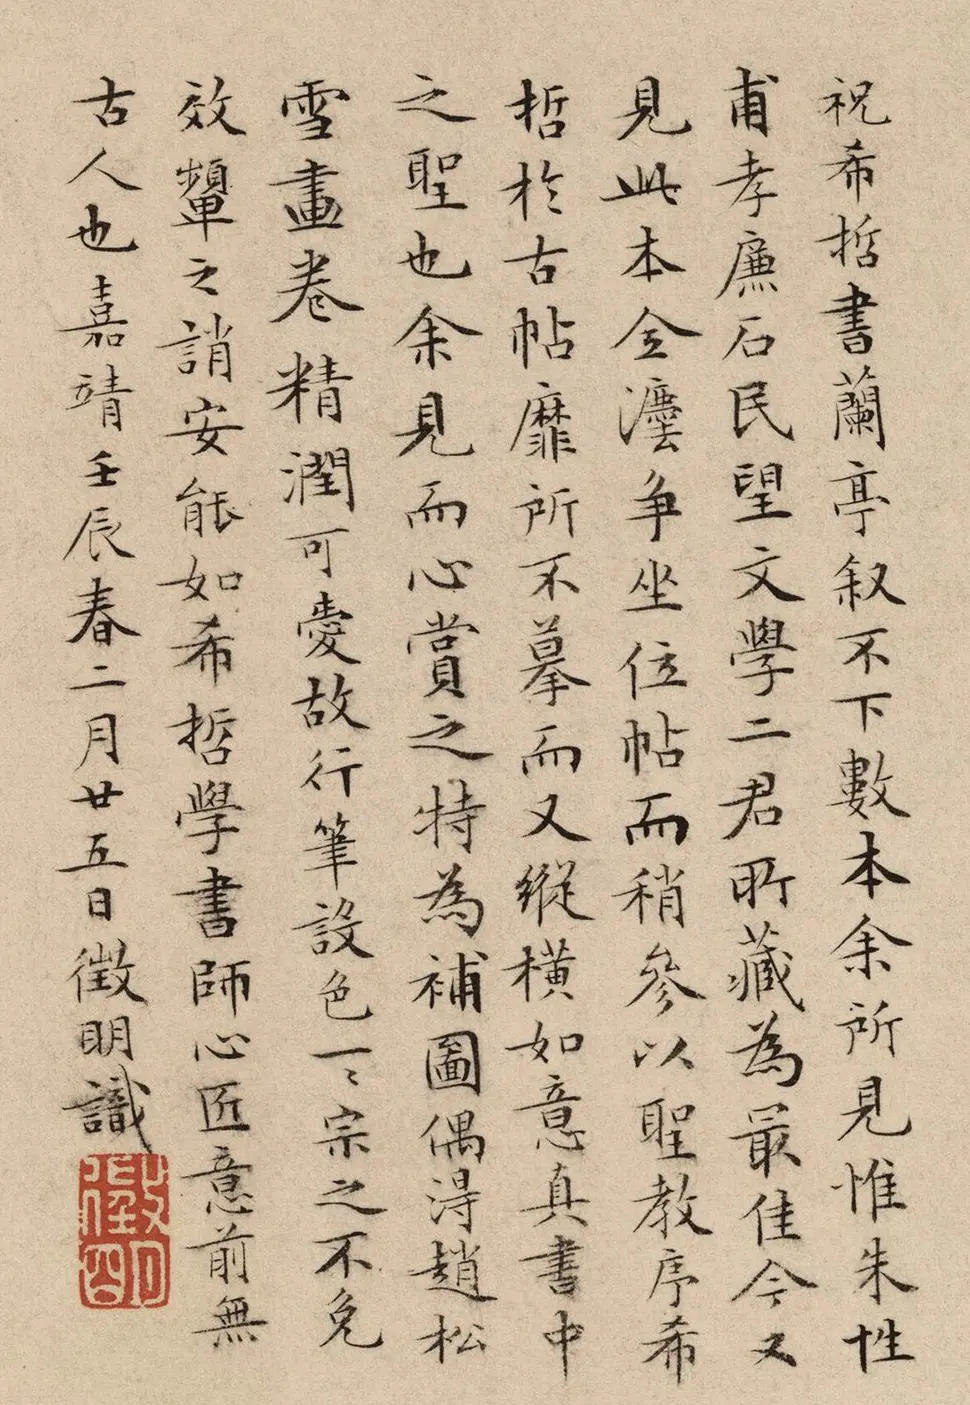 祝希哲書蘭亭叙不下數本余所見惟朱性
甫孝廉石民望文學二君所藏為最佳今又
見此本全瀍爭坐位帖而稍參以聖教序希
哲於古帖靡所不摹而又縱橫如意真書中
之聖也余見而心賞之特為補圖偶得趙松
雪畫卷精潤可愛故行筆設色一一宗之不免
效顰之誚安能如希哲學書師心匠意前無
古人也嘉靖壬辰春二月廿五日徵明識
徵明